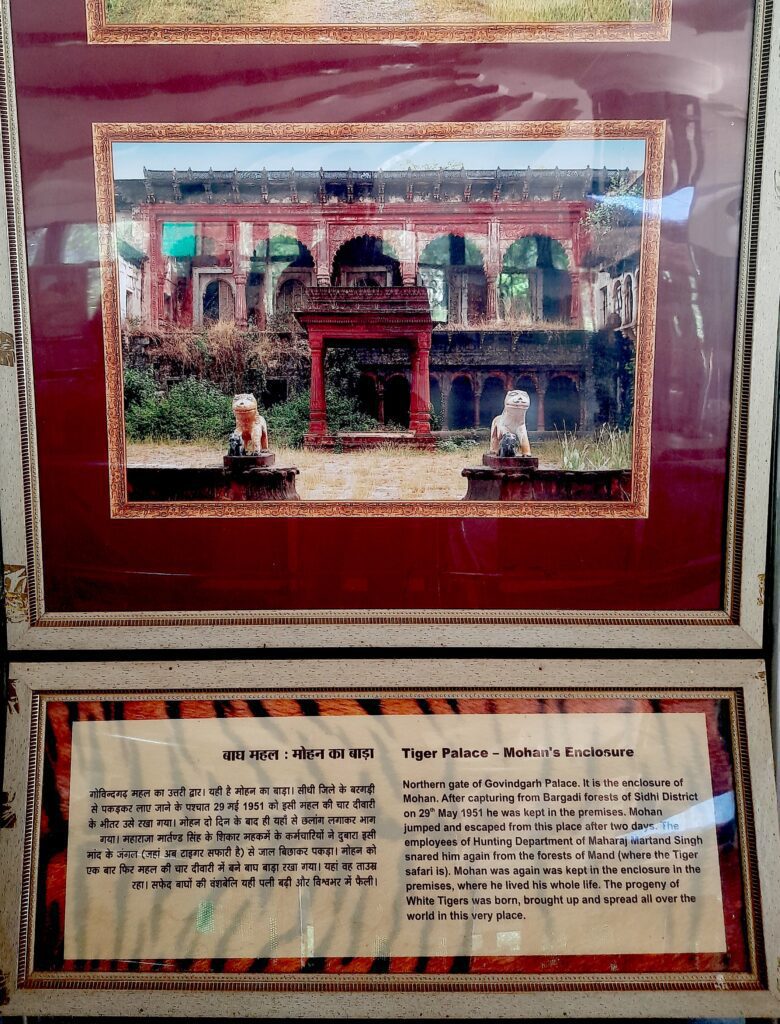 बाघ महल : मोहन का बाड़ा
गोविन्दगढ़ महल का उत्तरी द्वार। यही है मोहन का बाड़ा। सीधी जिले के बरगड़ी
से पकड़कर लाए जाने के पश्चात 29 मई 1951 को इसी महल की चार दीवारी
के भीतर उसे रखा गया। मोहन दो दिन के बाद ही यहाँ से छलांग लगाकर भाग
गया। महाराजा मार्तण्ड सिंह के शिकार महकमें के कर्मचारियों ने दुबारा इसी
मांद के जंगल (जहां अब टाइगर सफारी है) से जाल बिछाकर पकड़ा। मोहन को
एक बार फिर महल की चार दीवारी में बने बाघ बाड़ा रखा गया। यहां वह ताउम्र
रहा। सफेद बाघों की वंशबेलि यहीं पली बढ़ी और विश्वभर में फैली।
Tiger Palace – Mohan's Enclosure
Northern gate of Govindgarh Palace. It is the enclosure of
Mohan. After capturing from Bargadi forests of Sidhi District
on 29th May 1951 he was kept in the premises. Mohan
jumped and escaped from this place after two days. The
employees of Hunting Department of Maharaj Martand Singh
snared him again from the forests of Mand (where the Tiger
safari is). Mohan was again was kept in the enclosure in the
premises, where he lived his whole life. The progeny of
White Tigers was born, brought up and spread all over the
world in this very place.